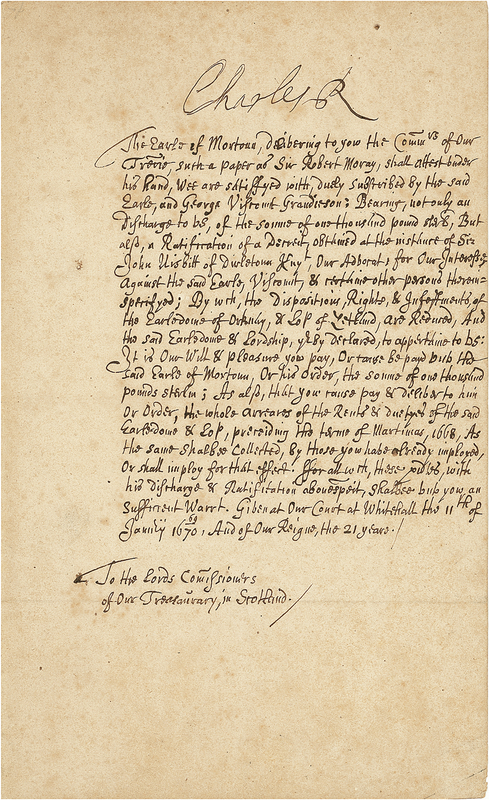 Charles R
The Earle of Mortoun, delibering to you the Commrs of Our
Trērie, such a paper as Sir Robert Moray, shall attest vnder
his hand, Wee are satisfyed with, duely subscribed by the said
Earle, and George Viscomt Grandieson; Bearing, not only an
Discharge to vs, of the soume of one thousand pound sterl., But
also, a Ratification of a Decreit, obtained at the instance of Sir
John Nisbitt of Dirletoun Knyt, Our Advocat, for Our Interest;
Against the said Earle, Viscomt, & certaine other persons therein-
specifyed; By wch, the Dispositions, Rights, & Infeftments, of
the Earledome of Orkney, & Lop of Zetland, are Reduced, And
the said Earledome & Lordship, yrby declared, to appertaine to vs:
It is Our Will & pleasure you pay, Or cause be paid vnto the
said Earle of Mortoun, Or his Order, the soume of one thousand
pounds sterlin; As also, that you cause pay & deliber to him
Or Order, the whole arreares of the Rents & duetyes of the said
Earledome & Lop, preceiding the terme of Martimas, 1668, As
the same shalbee Collected, by those you have already imployed,
Or shall imploy for that effect: ffor all wch, these pnts, with
his discharge & Ratification abouespeit, shalbee vnto you, an
sufficient Warrt. Giben at Our Court at Whitehall the 11th of
Janry 1669/70, And of Our Reigne, the 21 yeare./
To the Lords Comissioners
of Our Treasaurary, in Scotland./